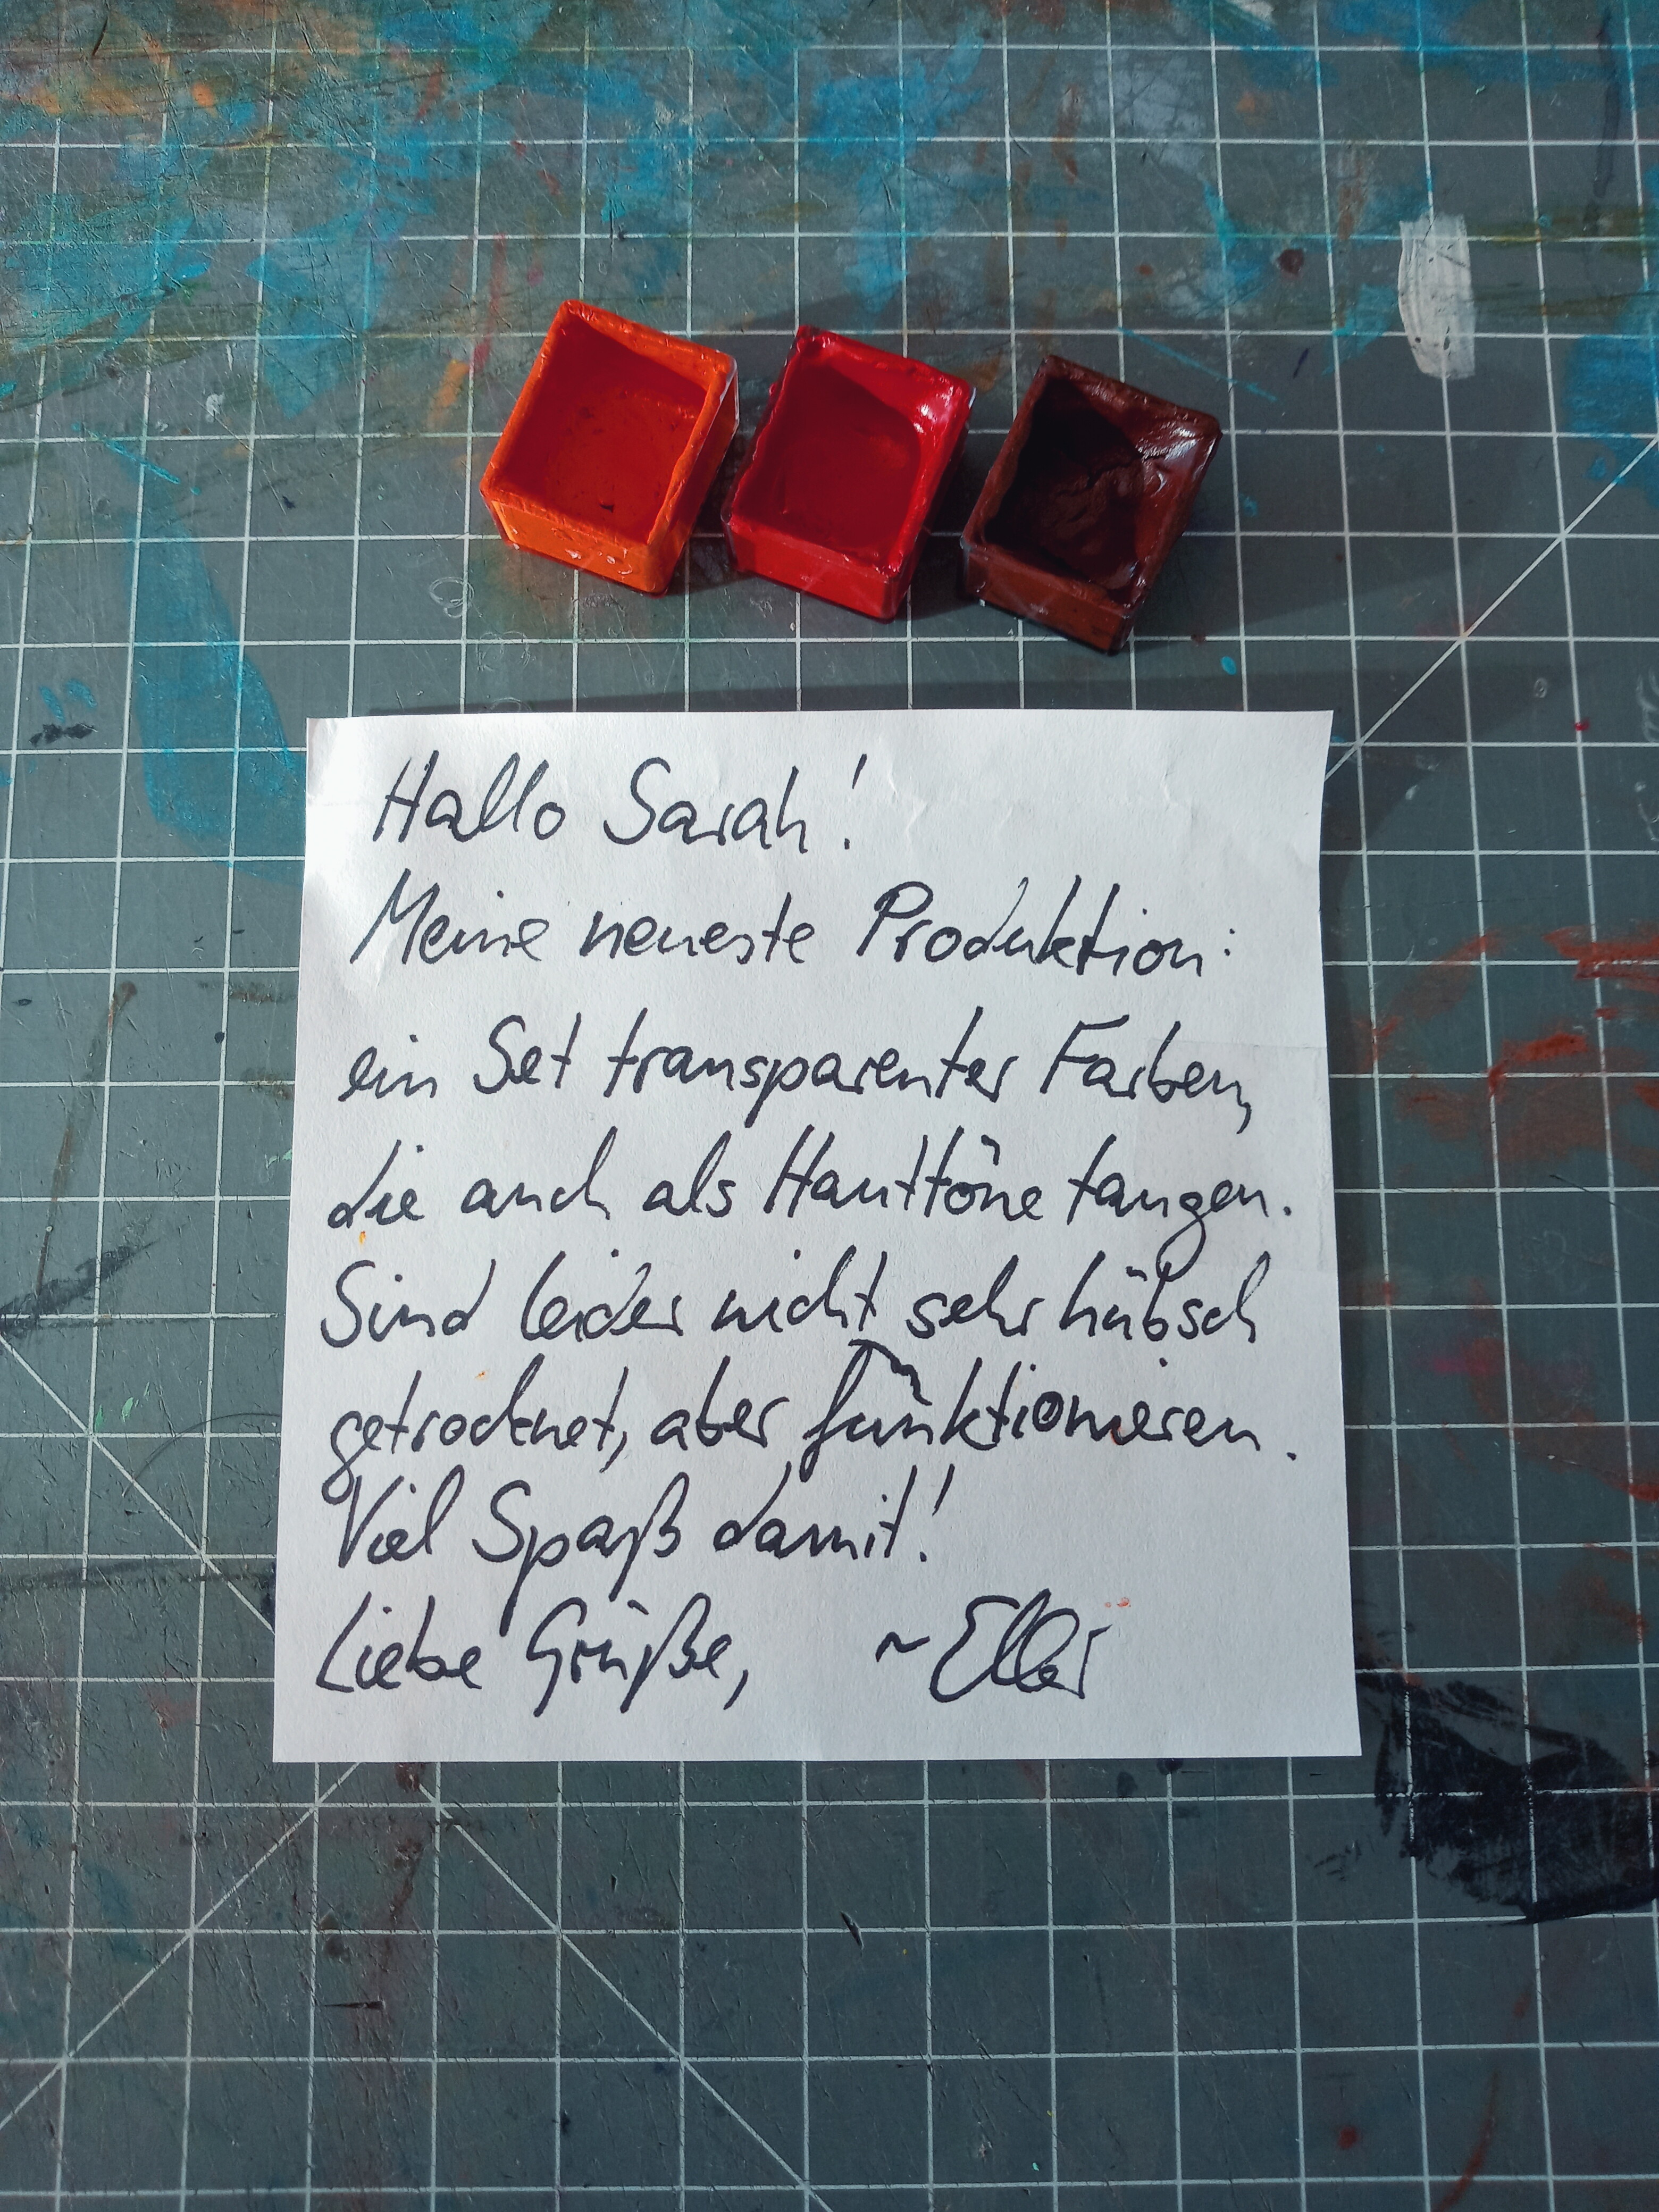 Hallo Sarah!
Meine neueste Produktion:
ein Set transparenter Farben,
die auch als Hauttöne taugen.
Sind leider nicht sehr hübsch
getrocknet, aber funktionieren.
Viel Spaß damit!
Liebe Grüße, ~